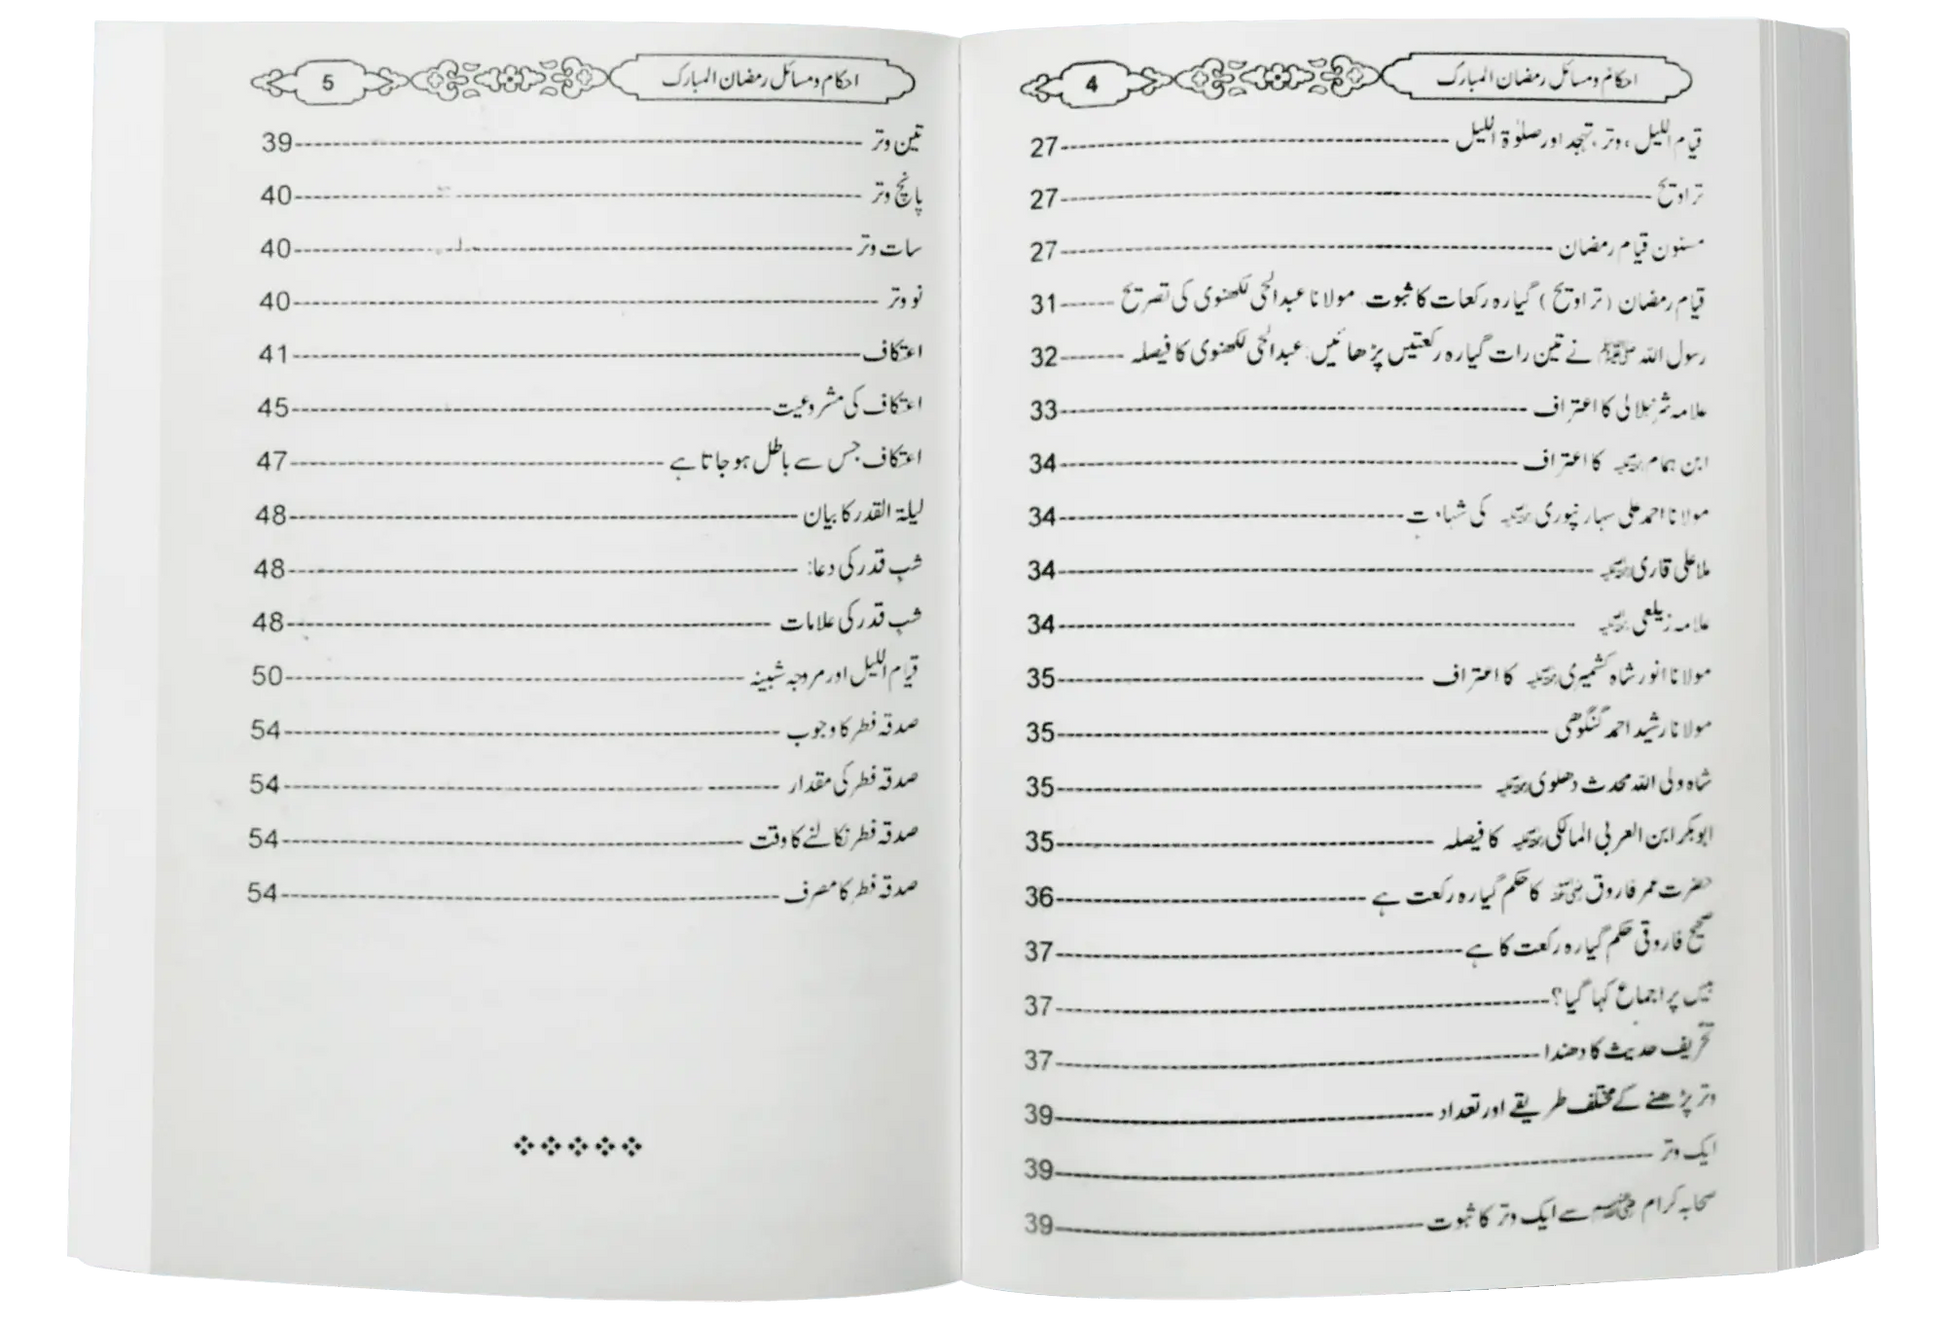 احکام و مسائل رمضان المبارک 4
قیام اللیل، وتر، تہجد اور صلوٰۃ اللیل 27
تراویح 27
مسنون قیام رمضان 27
قیام رمضان (تراویح) گیارہ رکعات کا ثبوت مولانا عبدالحئی لکھنوی کی تصریح 31
رسول اللہ ﷺ نے تین رات گیارہ رکعتیں پڑھائیں: عبدالحئی لکھنوی کا فیصلہ 32
علامہ شرنبلالی کا اعتراف 33
ابن ہمام رحمہ اللہ کا اعتراف 34
مولانا احمد علی سہارنپوری رحمہ اللہ کی شہادت 34
ملا علی قاری رحمہ اللہ 34
علامہ زیلعی رحمہ اللہ 34
مولانا انور شاہ کشمیری رحمہ اللہ کا اعتراف 35
مولانا رشید احمد گنگوھی 35
شاہ ولی اللہ محدث دھلوی رحمہ اللہ 35
ابوبکر ابن العربی المالکی رحمہ اللہ کا فیصلہ 35
حضرت عمر فاروق رضی اللہ عنہ کا حکم گیارہ رکعت ہے 36
صحیح فاروقی حکم گیارہ رکعت کا ہے 37
بیس پر اجماع کہا گیا؟ 37
تحریف حدیث کا دھندا 37
وتر پڑھنے کے مختلف طریقے اور تعداد 39
ایک وتر 39
صحابہ کرام رضی اللہ عنہم سے ایک وتر کا ثبوت 39
احکام و مسائل رمضان المبارک 5
تین وتر 39
پانچ وتر 40
سات وتر 40
نو وتر 40
اعتکاف 41
اعتکاف کی مشروعیت 45
اعتکاف جس سے باطل ہو جاتا ہے 47
لیلۃ القدر کا بیان 48
شب قدر کی دعا: 48
شب قدر کی علامات 48
قیام اللیل اور مروجہ شبینہ 50
صدقہ فطر کا وجوب 54
صدقہ فطر کی مقدار 54
صدقہ فطر نکالنے کا وقت 54
صدقہ فطر کا مصرف 54